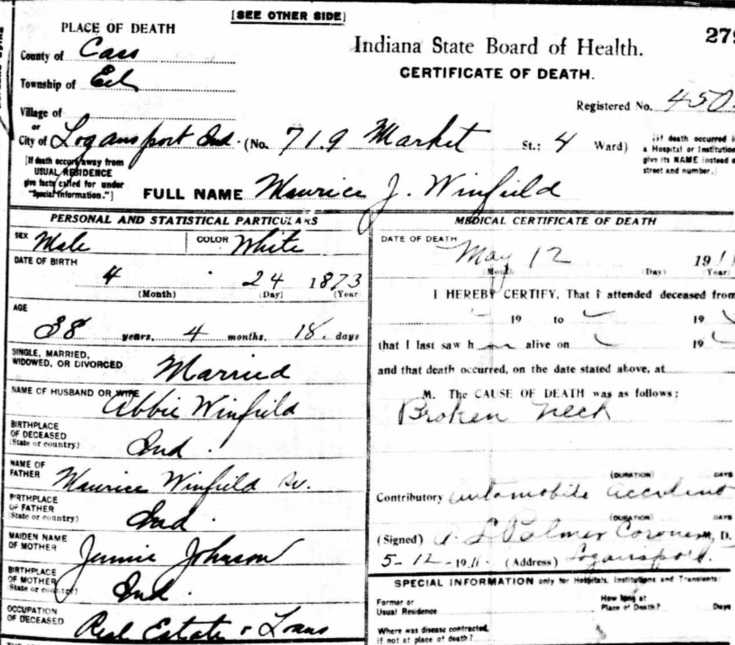 [SEE OTHER SIDE]
PLACE OF DEATH
County of Cass
Township of Eel
Village of
or
City of Logansport Ind. (No. 719 Market St.: 4 Ward)
Indiana State Board of Health.
CERTIFICATE OF DEATH.
279
Registered No. 450
[If death occurred i
a Hospital or Institution
give its NAME instead o
street and number.]
[If death occurs away from
USUAL RESIDENCE
give facts called for under
"Special Information."]
FULL NAME Maurice J. Winfield
PERSONAL AND STATISTICAL PARTICULARS
SEX Male COLOR White
DATE OF BIRTH
4 24 1873
(Month) (Day) (Year)
AGE
38 years, 4 months, 18 days
SINGLE, MARRIED,
WIDOWED, OR DIVORCED Married
NAME OF HUSBAND OR WIFE
Abbie Winfield
BIRTHPLACE
OF DECEASED
(State or country) Ind.
NAME OF
FATHER Maurice Winfield Sr.
BIRTHPLACE
OF FATHER
(State or country) Ind.
MAIDEN NAME
OF MOTHER Jennie Johnson
BIRTHPLACE
OF MOTHER
(State or country) Ind.
OCCUPATION
OF DECEASED Real Estate & Loans
MEDICAL CERTIFICATE OF DEATH
DATE OF DEATH
May 12 1911
(Month) (Day) (Year)
I HEREBY CERTIFY, That I attended deceased from
19 to 19
that I last saw h alive on 19
and that death occurred, on the date stated above, at
M. The CAUSE OF DEATH was as follows:
Broken Neck
(DURATION) DAYS
Contributory Automobile Accident
(DURATION) DAYS
(Signed) A L Palmer Coroner, M. D.
5-12-1911. (Address) Logansport.
SPECIAL INFORMATION only for Hospitals, Institutions and Transients:
Former or
Usual Residence
How long at
Place of Death? Days
Where was disease contracted,
if not at place of death?